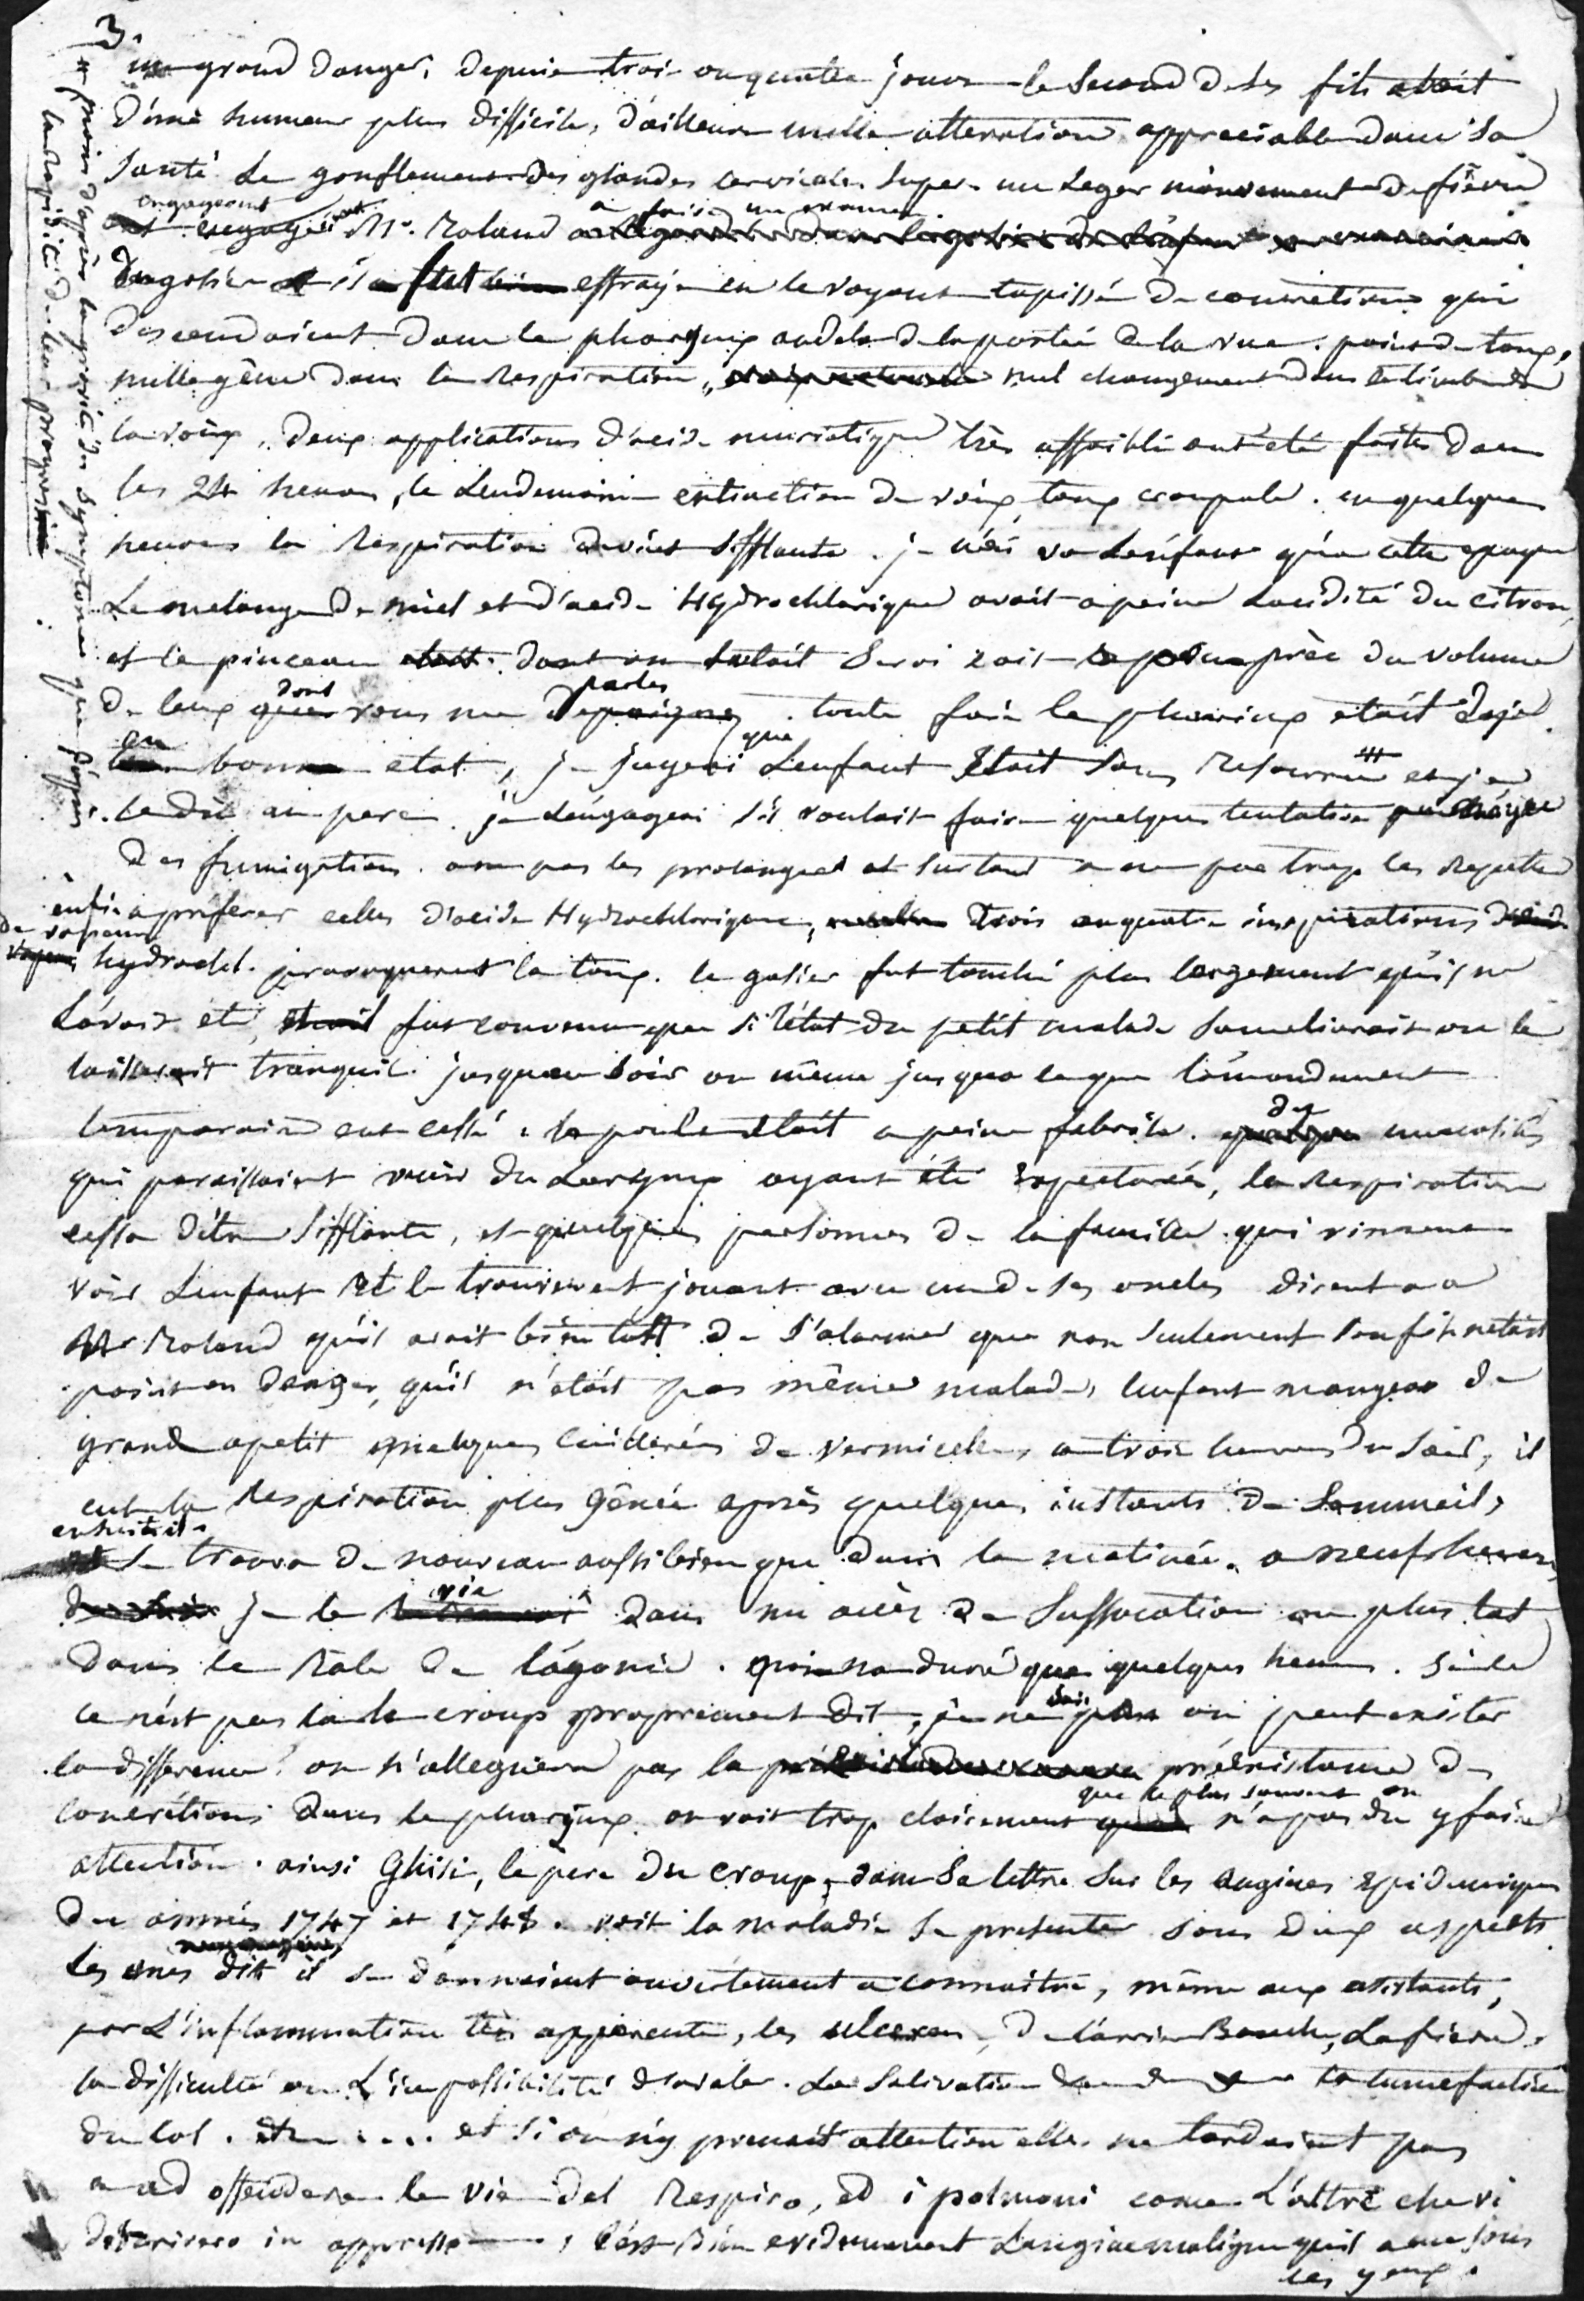 3.
un grand danger, depuis trois ou quatre jours le second de ses fils etait
d'une humeur plus difficile, d'ailleurs nulle alteration appreciable dans sa
santé. Le gonflement des glandes cervicales super. un leger mouvement de fièvre
engageant Mr. Roland a faire un examen
du gosier il fut effrayé en le voyant tapissé de concretions qui
descendoient dans le pharynx audela de la portée de la vue. point de toux,
nulle gêne dans la respiration, nul changement dans le timbre de
la voix, deux applications d'acide muriatique très affoibli ont été faites dans
les 24 heures, le lendemain extinction de voix, toux croupale. en quelques
heures la respiration devint sifflante. je n'ai vu l'enfant qu'a cette epoque
Le melange de miel et d'acide Hydrochlorique avait apeine l'acidité du citron,
et le pinceau dont on s'etait servi etait apeu près du volume
de ceux dont vous me parlez. toute fois le pharinx etait deja
en bon etat, je jugeai que l'enfant etait sans ressource et je
le dis au pere. je l'engageai s'il voulait faire quelques tentatives
des fumigations. a ne pas les prolonger et surtout a ne pas trop les repeter
enfin a preferer celles d'acide Hydrochlorique, trois ou quatre inspirations
de vapeur hydrochl. provoquerent la toux. le gosier fut touché plus largement qu'il ne
l'avait été, il fut convenu que si l'état du petit malade s'ameliorait on le
laisserait tranquil. jusqu'au soir ou même jusqu'a ce que l'amendement
temporaire eut cessé. le pouls etait apeine febrile. des mucosités
qui paraissaient venir du Larynx ayant été expectorées, la respiration
cessa d'être sifflante, et quelques personnes de la famille qui vinrent
voir l'enfant et le trouverent jouant avec un de ses oncles dirent a
Mr Roland qu'il avait bien tort de s'alarmer que non seulement son fils n'etait
point en danger, qu'il n'était pas même malade, l'enfant mangea de
grand apetit quelques cuillerées de vermicelle, a trois heures du soir, il
eut la respiration plus gênée après quelques instants de sommeil,
ensuite il se trouva de nouveau aussi bien que dans la matinée. a neuf heures
je le vis dans un accès de suffocation ou plus tot
dans le râle de l'agonie. qui n'a duré que quelques heures. si ce
ce n'est pas là le croup proprement dit, je ne sais ou peut exister
la difference. on n'alleguera pas la préexistence de
concrétions dans le pharynx. on voit trop clairement que le plus souvent on n'a pas du y faire
attention. ainsi Ghisi, le pere du croup, dans sa lettre sur les angines epidemiques
des années 1747 et 1748. voit la maladie se presenter sous deux aspects
Les unes dit il se donnoient ouvertement a connoitre, même aux assistants,
par l'inflammation très apparente, les ulceres, de l'arriere Bouche, la fievre,
la difficulté ou l'impossibilité d'avaler. La salivation la tumefaction
du col. etc .... et si on n'y prenait attention elles ne tardaient pas
a ad offendere le vie del Respiro, ed i polmoni come l'altre che vi
descrivero in appresso, c'est bien evidemment l'angine maligne qu'il a eue sous
les yeux.
moins d'après la gravité des symptomes que d'apres
la rapidité de leur progression